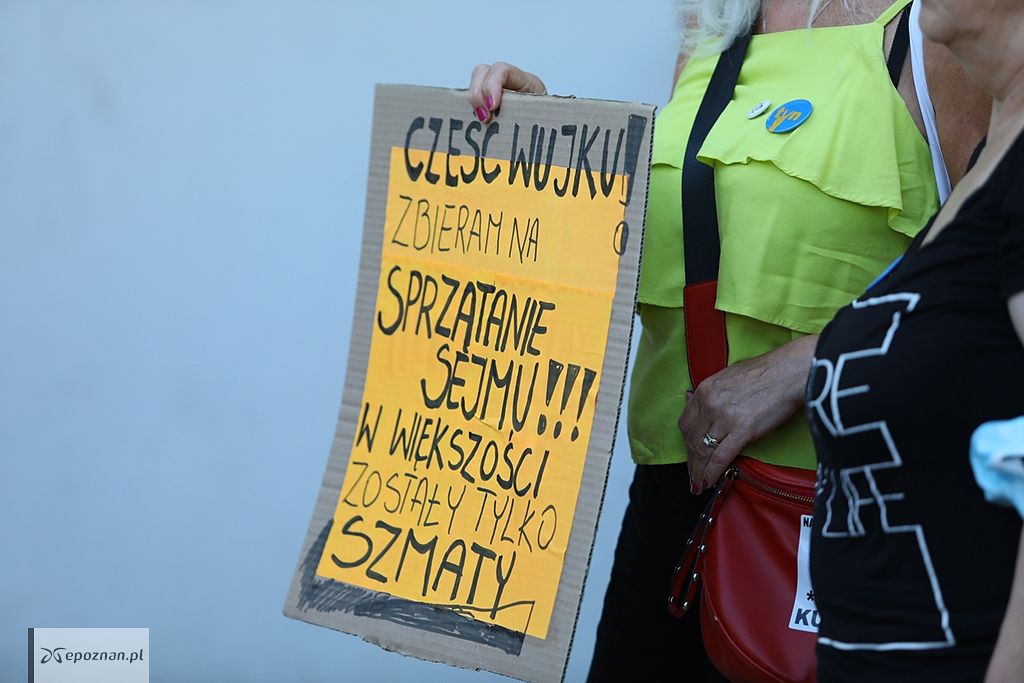 CZEŚĆ WUJKU!
ZBIERAM NA
SPRZĄTANIE
SEJMU!!!
W WIĘKSZOŚCI
ZOSTAŁY TYLKO
SZMATY
epoznan.pl